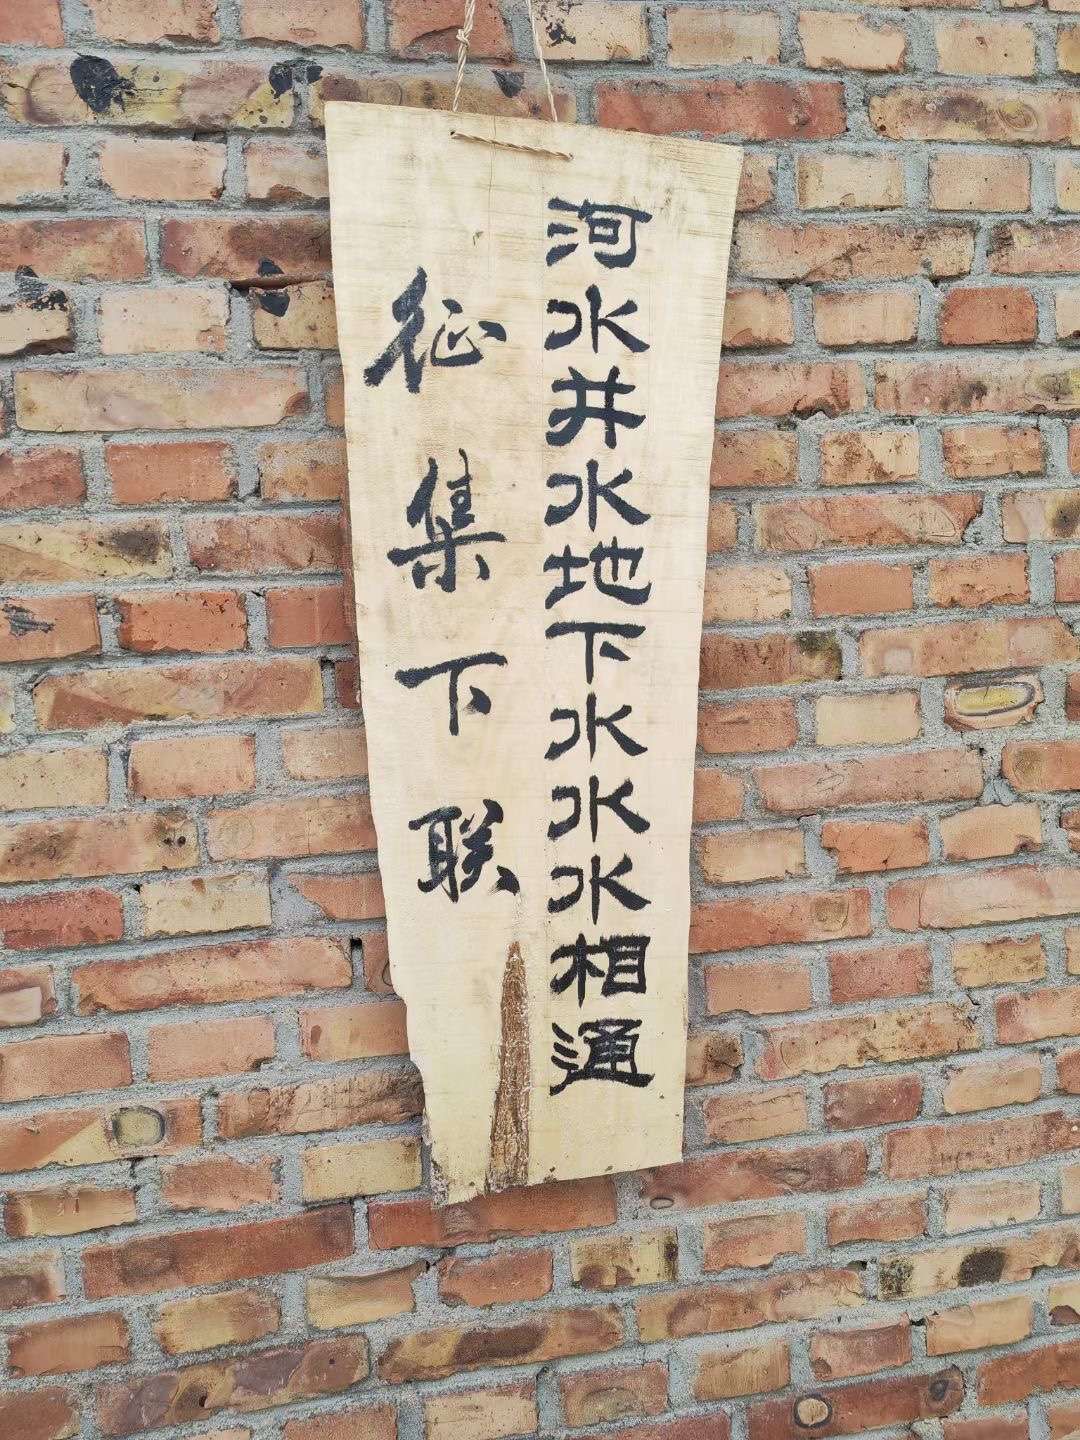 河水井水地下水水水相通
征集下联